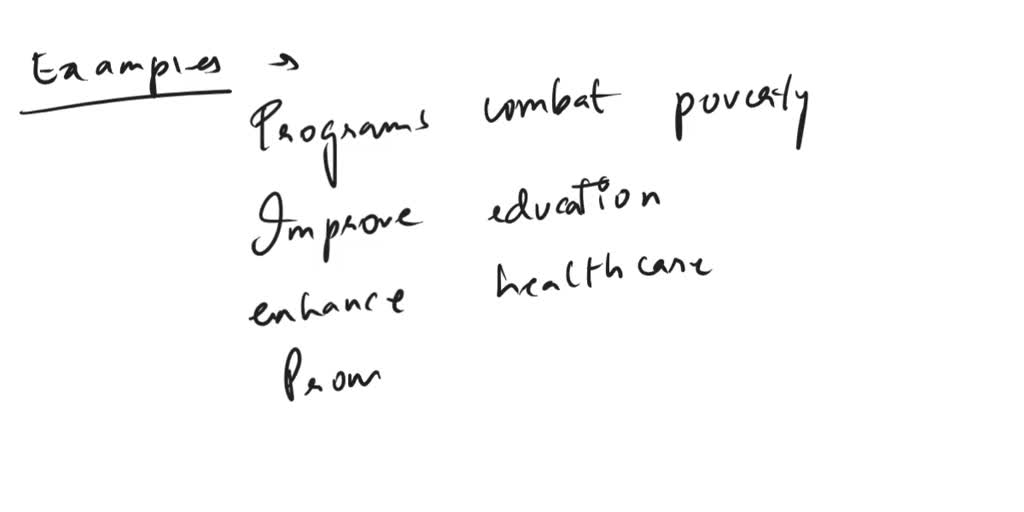 Examples →
Programs combat poverty
Improve education
enhance healthcare
Prom